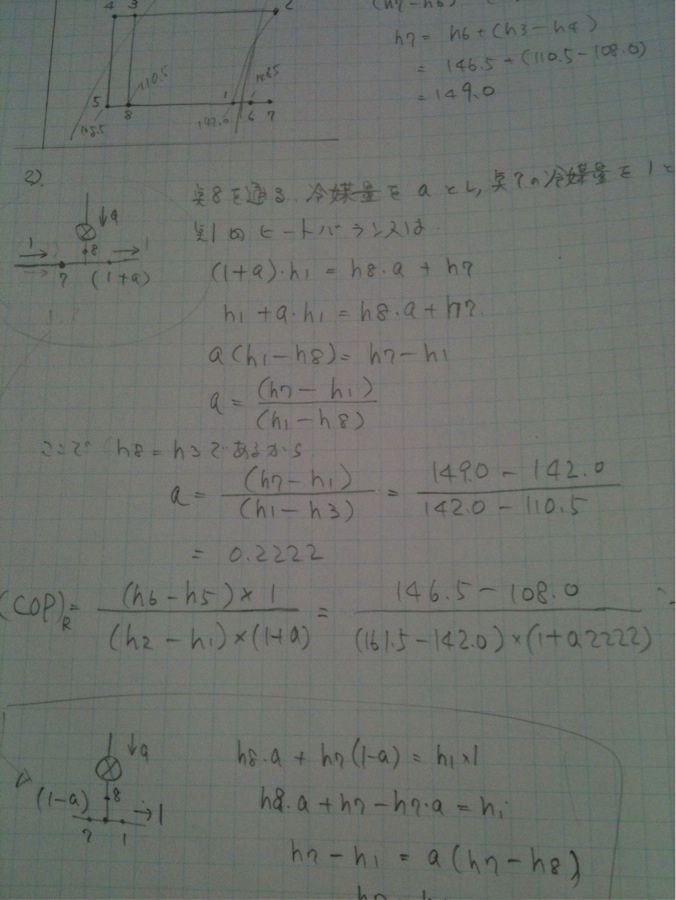 4 3 2
(h7-h6)
h7 = h6+(h3-h4)
= 146.5+(110.5-108.0)
= 149.0
110.5
5 8 1 6 7
2).
点8を通る 冷媒量をaとし,点7の冷媒量を1と
点1のヒートバランスは
↓a
8
1 → → 1
7 (1+a)
(1+a)・h1 = h8・a + h7
h1 + a・h1 = h8・a + h7
a(h1-h8) = h7-h1
a = (h7-h1)/(h1-h8)
ここで h8=h3であるから
a = (h7-h1)/(h1-h3) = (149.0-142.0)/(142.0-110.5)
= 0.2222
(COP)R = (h6-h5)×1/(h2-h1)×(1+a) = 146.5-108.0/(161.5-142.0)×(1+0.2222)
↓a
(1-a) 8 → 1
7 1
h8・a + h7(1-a) = h1×1
h8・a + h7 - h7・a = h1
h7-h1 = a(h7-h8)